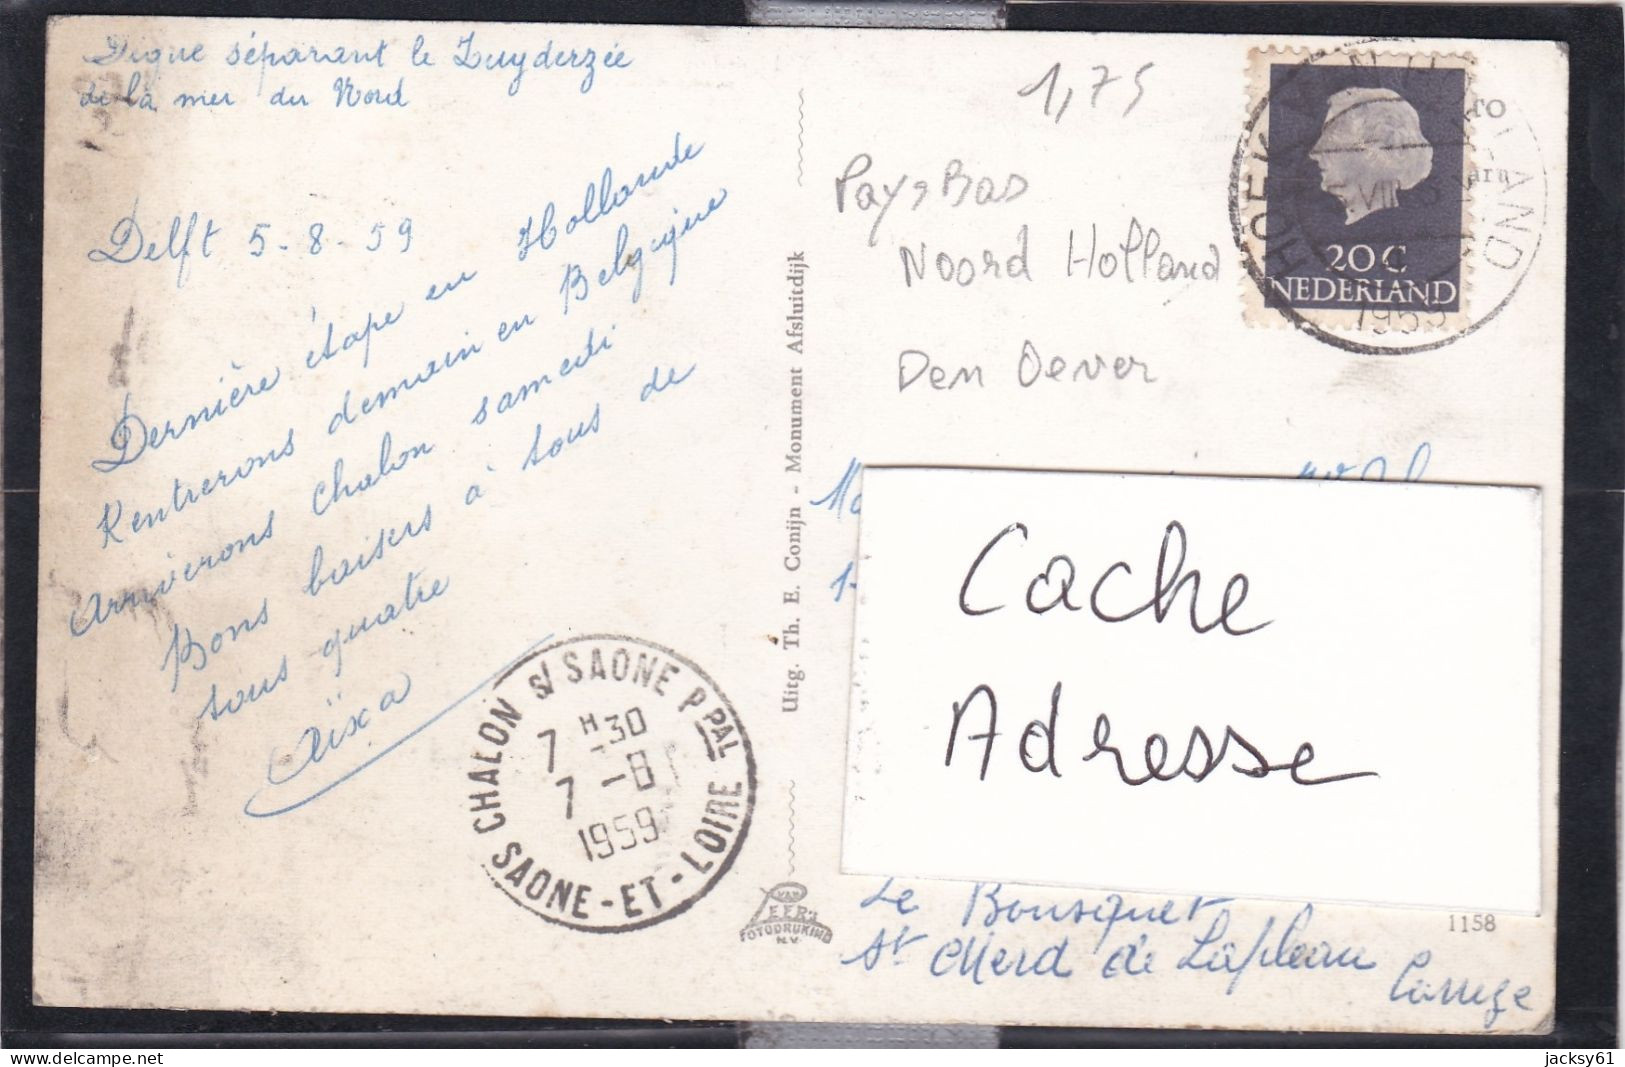 Digue séparant le Zuyderzée
de la mer du Nord
Delft 5-8-59
Dernière étape en Hollande
Rentrerons demain en Belgique
Arriverons Chalon samedi
Bons baisers à tous de
tous quatre
Aïxa
CHALON S/ SAONE PPAL
7 H30
7 -8
1959
SAONE-ET-LOIRE
Uitg. Th. E. Conijn - Monument Afsluitdijk
VAN
LEER'S
FOTODRUKIND
N.V.
1,75
Pays Bas
Noord Holland
Den Oever
TO
HOEK VAN HOLLAND
VIII
1959
20 C
NEDERLAND
Cache
Adresse
Le Bousquet
St Merd de Lapleau
Corrèze
1158
jacksy61